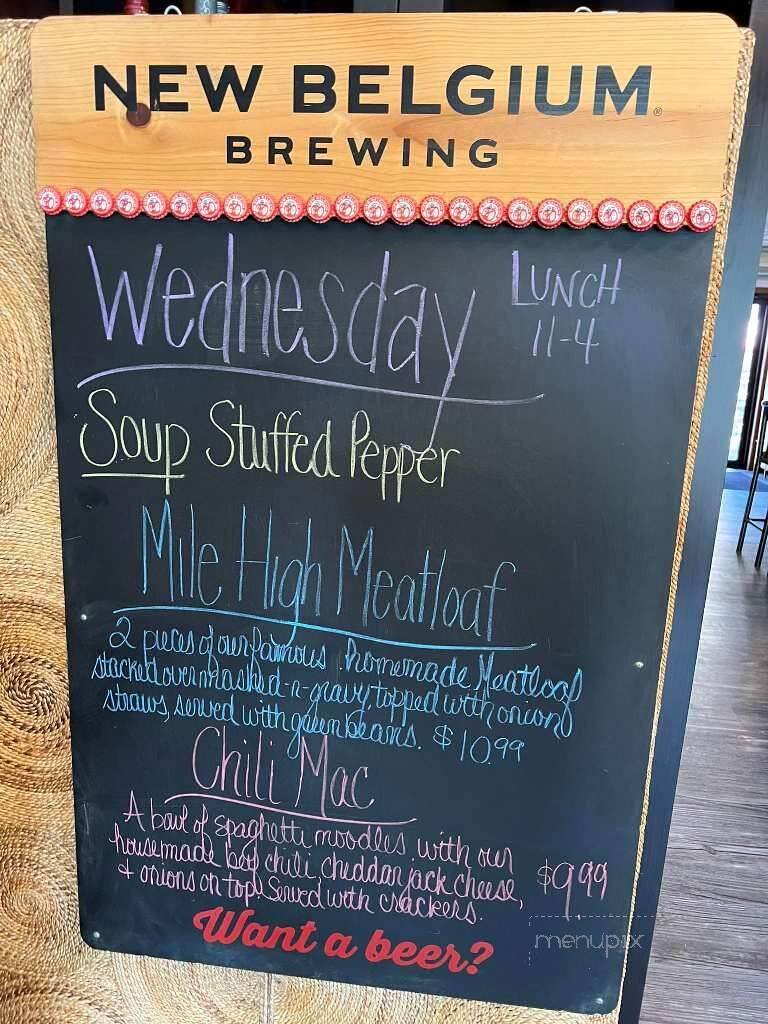 NEW BELGIUM®
BREWING
Wednesday
LUNCH
11-4
Soup Stuffed Pepper
Mile High Meatloaf
2 pieces of our famous homemade Meatloaf
stacked over mashed-n-gravy, topped with onion
straws, served with green beans. $10.99
Chili Mac
A bowl of spaghetti noodles with our
housemade beef chili, cheddar jack cheese,
+ onions on top! Served with crackers.
$9.99
Want a beer?
menupix